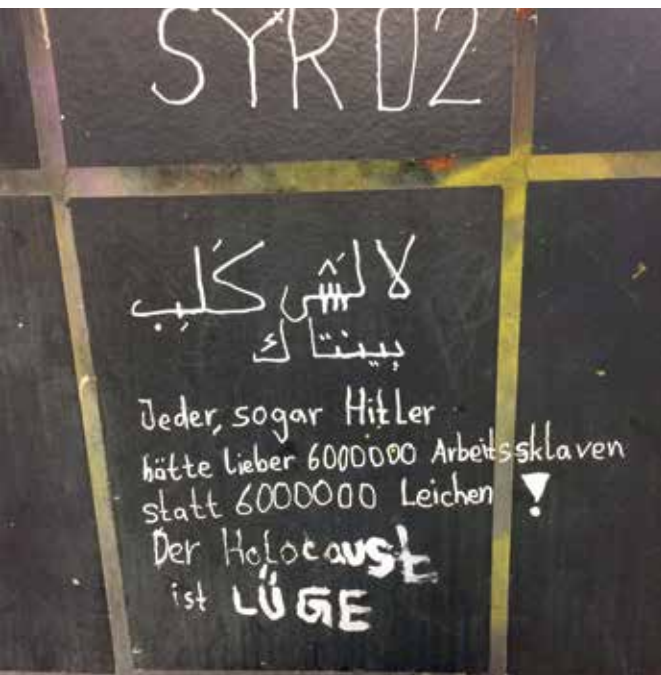 SYR 02
لا لشي كلب
بينتاك
Jeder, sogar Hitler
hätte lieber 6000000 Arbeitssklaven
statt 6000000 Leichen !
Der Holocaust
ist LÜGE